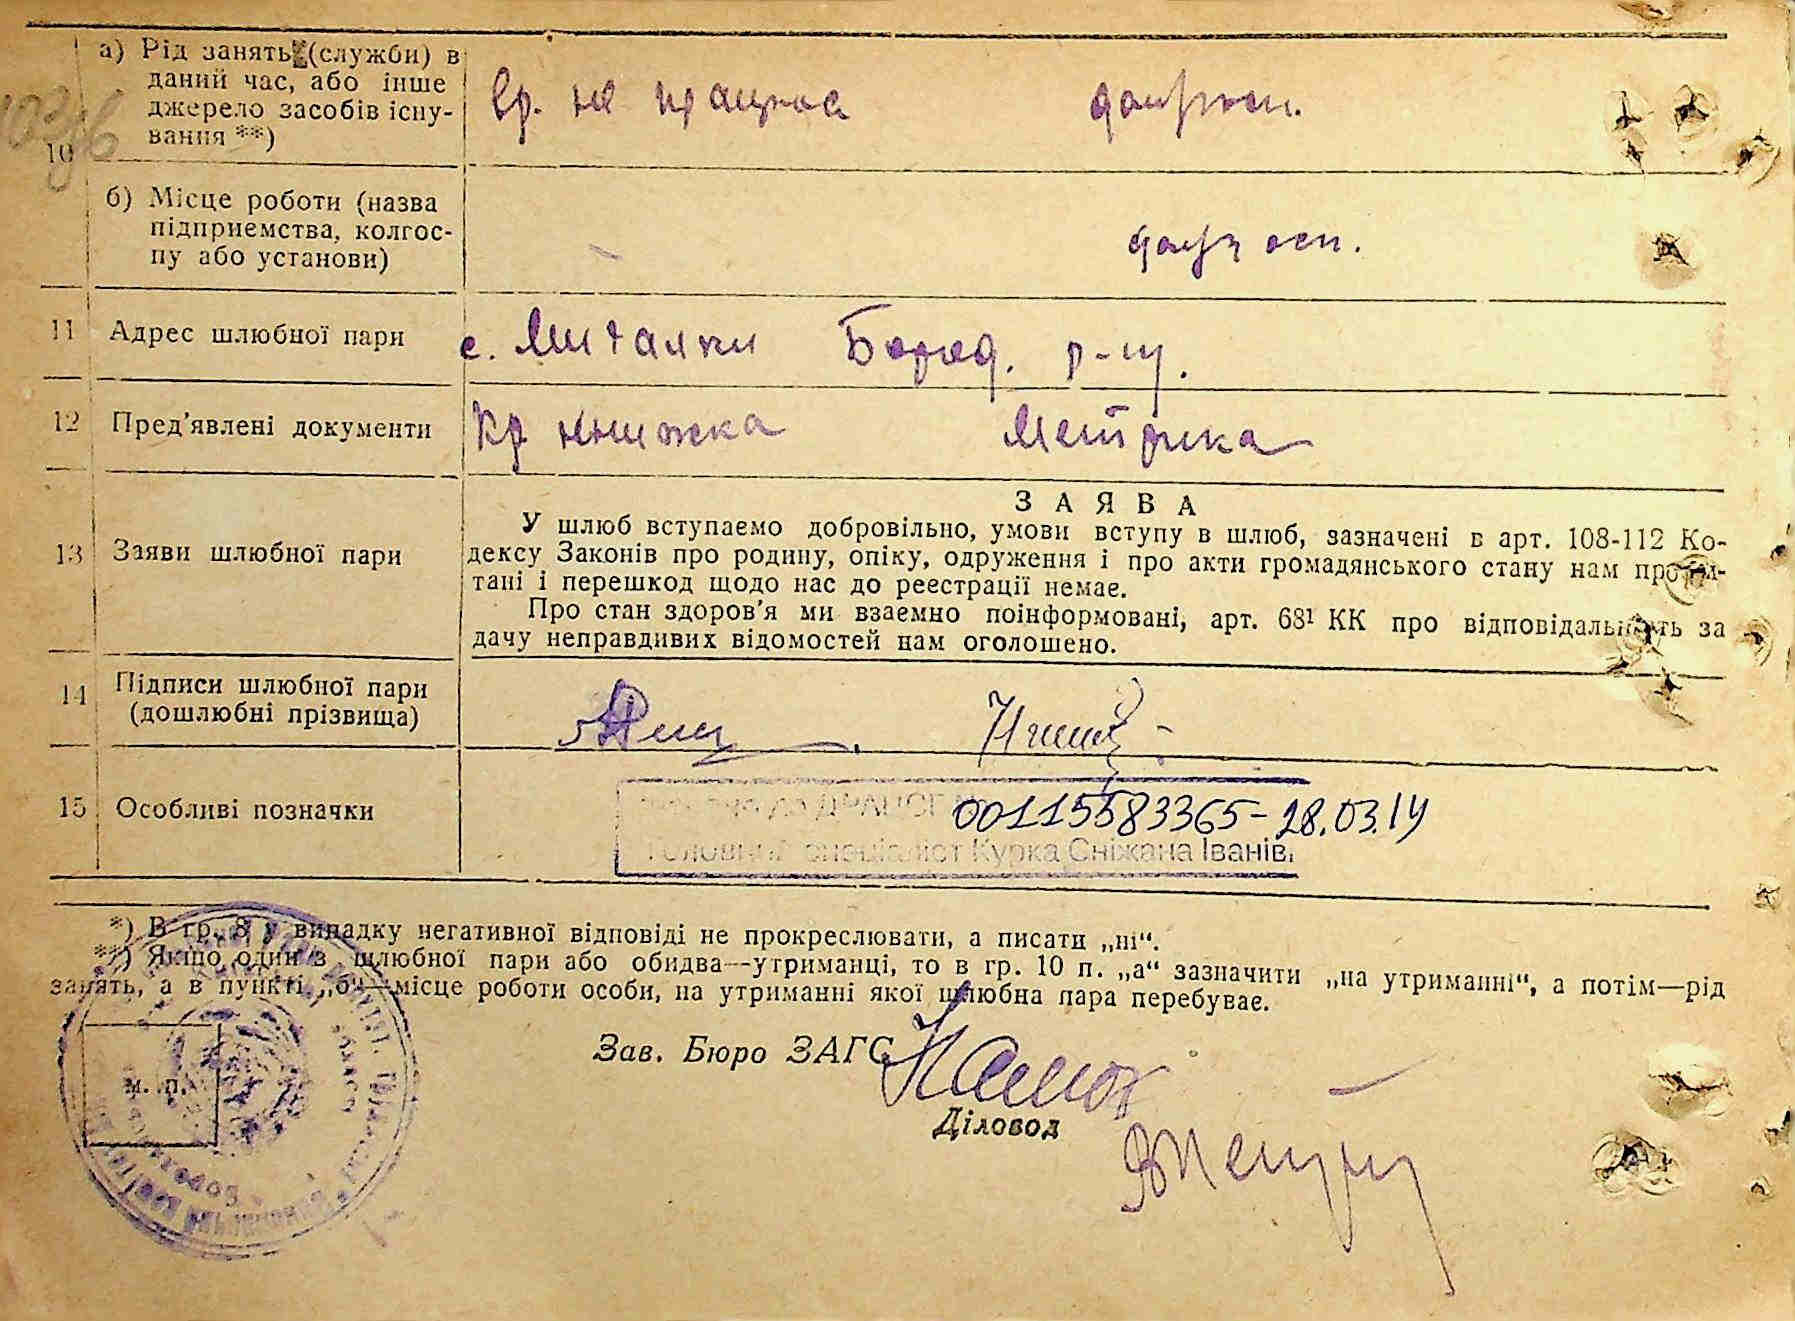 а) Рід занять (служби) в
даний час, або інше
джерело засобів існу-
вання **)
10
Вр. не працює
б) Місце роботи (назва
підприємства, колгос-
пу або установи)
11 Адрес шлюбної пари
с. Миталки Бород. р-ну.
12 Пред'явлені документи
Кр. книжка Метрика
З А Я В А
13 Заяви шлюбної пари
У шлюб вступаємо добровільно, умови вступу в шлюб, зазначені в арт. 108-112 Ко-
дексу Законів про родину, опіку, одруження і про акти громадянського стану нам прочи-
тані і перешкод щодо нас до реєстрації немає.
Про стан здоров'я ми взаємно поінформовані, арт. 68¹ КК про відповідальність за
дачу неправдивих відомостей нам оголошено.
14 Підписи шлюбної пари
(дошлюбні прізвища)
15 Особливі позначки
до ДРАЦСГ № 00115583365-28.03.14
Головний спеціаліст Курка Сніжана Іванів.
*) В гр. 8 у випадку негативної відповіді не прокреслювати, а писати „ні“.
**) Якщо один з шлюбної пари або обидва—утриманці, то в гр. 10 п. „а“ зазначити „на утриманні“, а потім—рід
занять, а в пункті „б“—місце роботи особи, на утриманні якої шлюбна пара перебуває.
Зав. Бюро ЗАГС
м. п.
Діловод